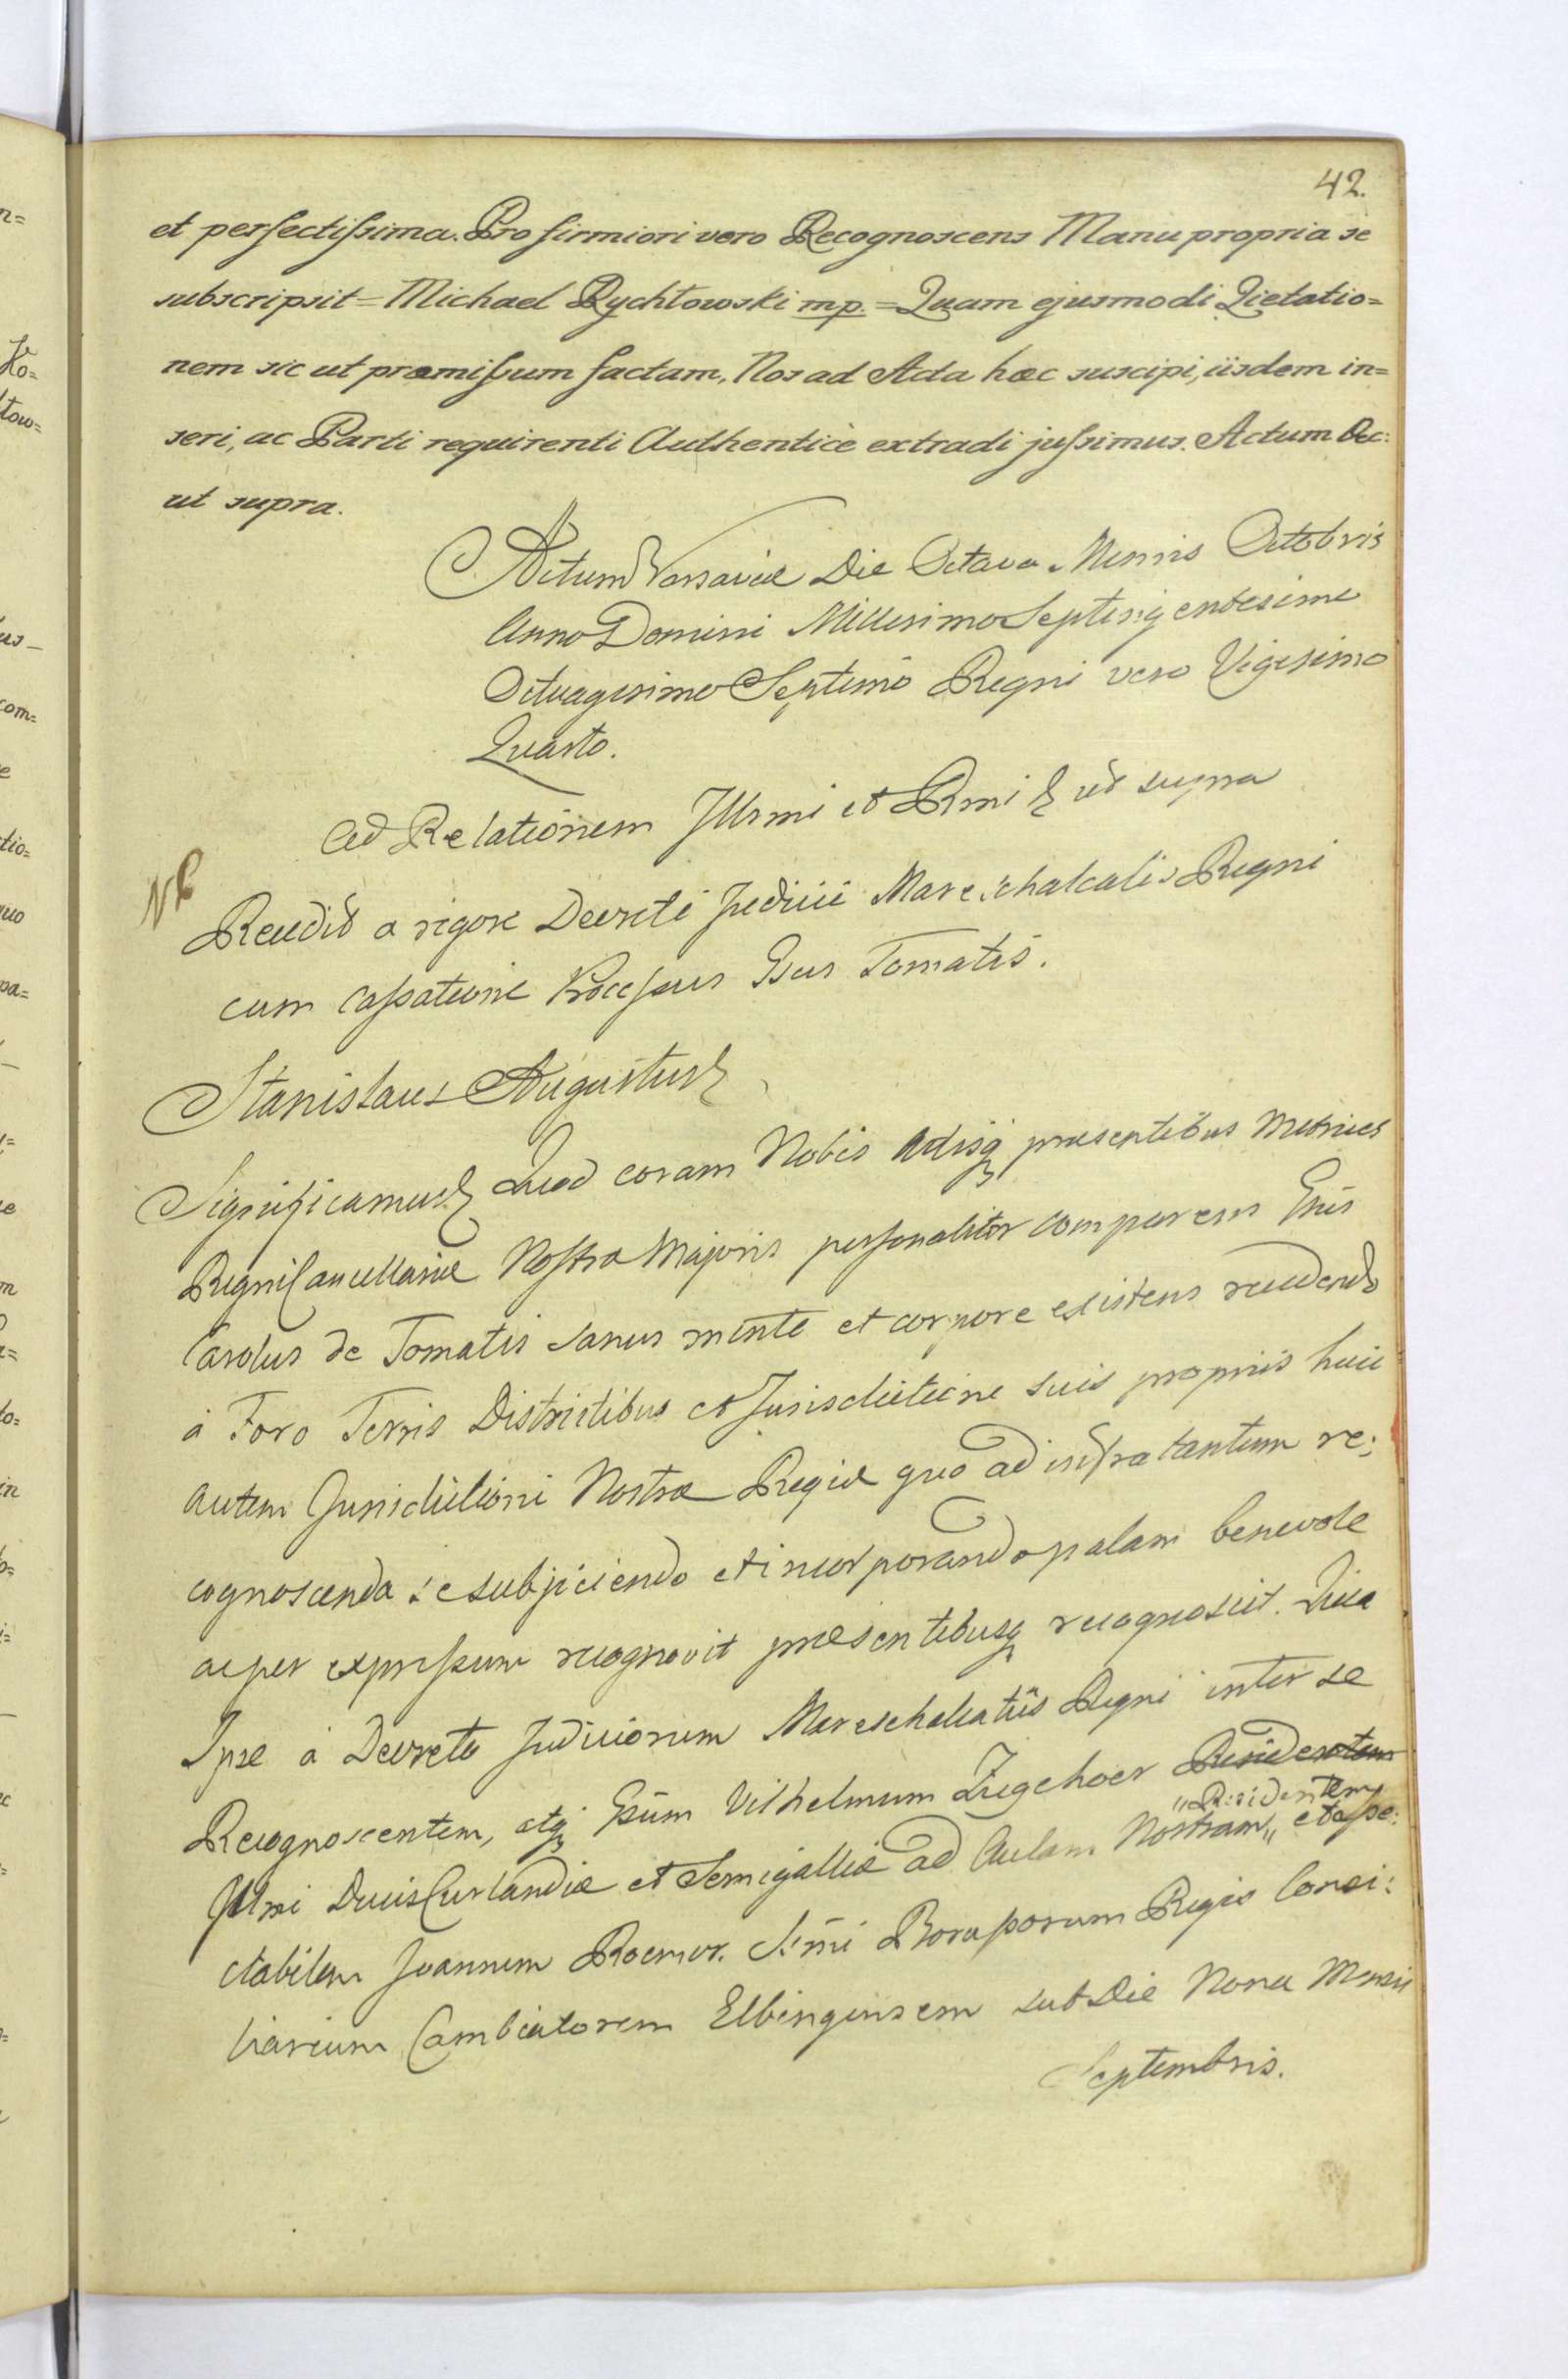 42.
et perfectiſsima. Pro firmiori vero Recognoscens Manu propria se
subscripsit = Michael Rychłowski mp. = Quam ejusmodi Qietatio=
nem sic ut præmiſsum factam, Nos ad Acta hæc suscipi, iisdem in=
seri, ac Parti requirenti Authenticè extradi juſsimus. Actum &c:
ut supra.
Actum Varsaviæ Die Octava Mensis Octobris
Anno Domini Millesimo Septingentesimo
Octuagesimo Septimo Regni vero Vigesimo
Quarto.
Ad Relationem Illrmi et Rmi & ut supra
NB
Recedit a rigore Decreti Judicii Mareschalcalis Regni
cum Caſsatione Proceſsus Gsus Tomatis.
Stanislaus Augustus &
Significamus & Quod coram Nobis Actisq presentibus Metrices
Regni Cancellariæ Noſtra Majoris perſonaliter comparens Gsus
Carolus de Tomatis sanus mente et corpore existens recedendo
à Foro Terris Districtibus et Jurisdictione suis propriis huic
autem Jurisdictioni Nostræ Regiæ quo ad infra tantum re:
cognoscenda se subjiciendo et incorporando palam benevole
ac per expreſsum recognovit præsentibusq recognoscit. Quia
Ipse à Decreto Judiciorum Mareschalcatûs Regni inter se
Recognoscentem, atq Gsum Vilhelmum Zugehoer Residentem
Illmi Ducis Curlandiæ et Semigalliæ ad Aulam Nostram „ et Spe:
„Residentem
ctabilem Joannem Roemer. Srmi Boruſsorum Regis Consi:
liarium Cambiatorem Elbingensem sub Die Nona Mensis
Septembris.
us_
com=
tio=
in